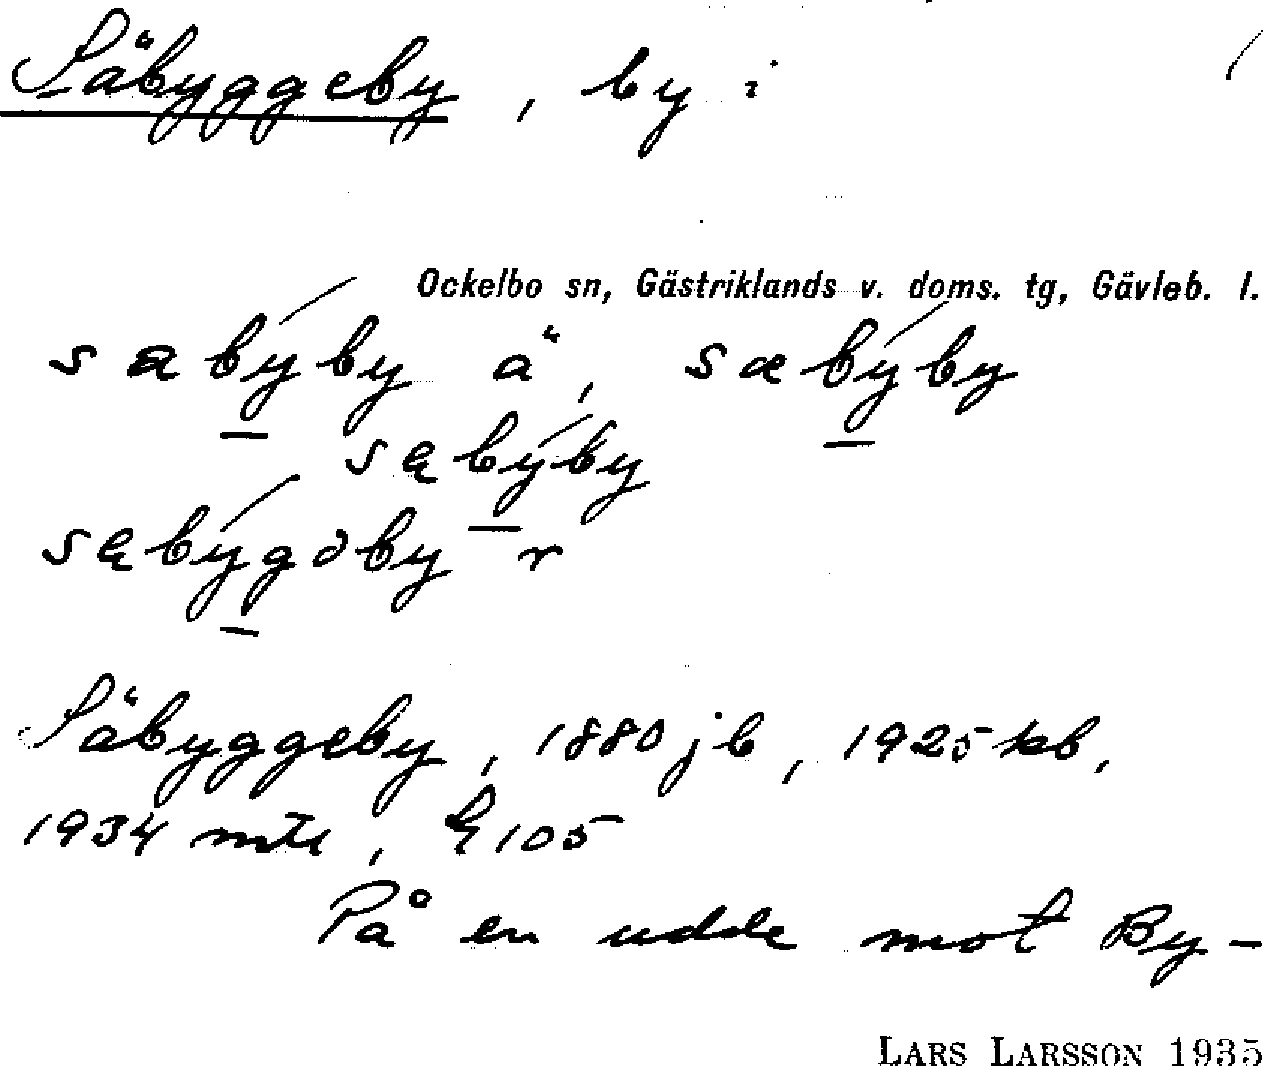 Säbyggeby, by i
Ockelbo sn, Gästriklands v. doms. tg, Gävleb. l.
sabýby ä, sæbýby
sębýby
sębýgəby r
Säbyggeby, 1880 jb, 1925 kb,
1934 mtl, E 105
På en udde mot By-
LARS LARSSON 1935